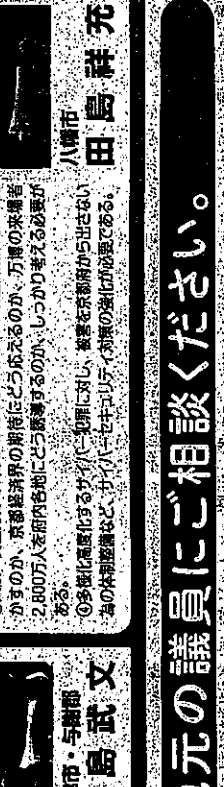 かすのか、京都経済界の期待にどう応えるのか、万博の来場者
2,800万人を府内各地にどう誘導するのか、しっかり考える必要が
ある。
④多様化高度化するサイバー犯罪に対し、被害を京都府から出さない
為の体制整備など、サイバーセキュリティ対策の強化が必要である。
八幡市
田島祥充
市・与謝郡
島武文
元の議員にご相談ください。